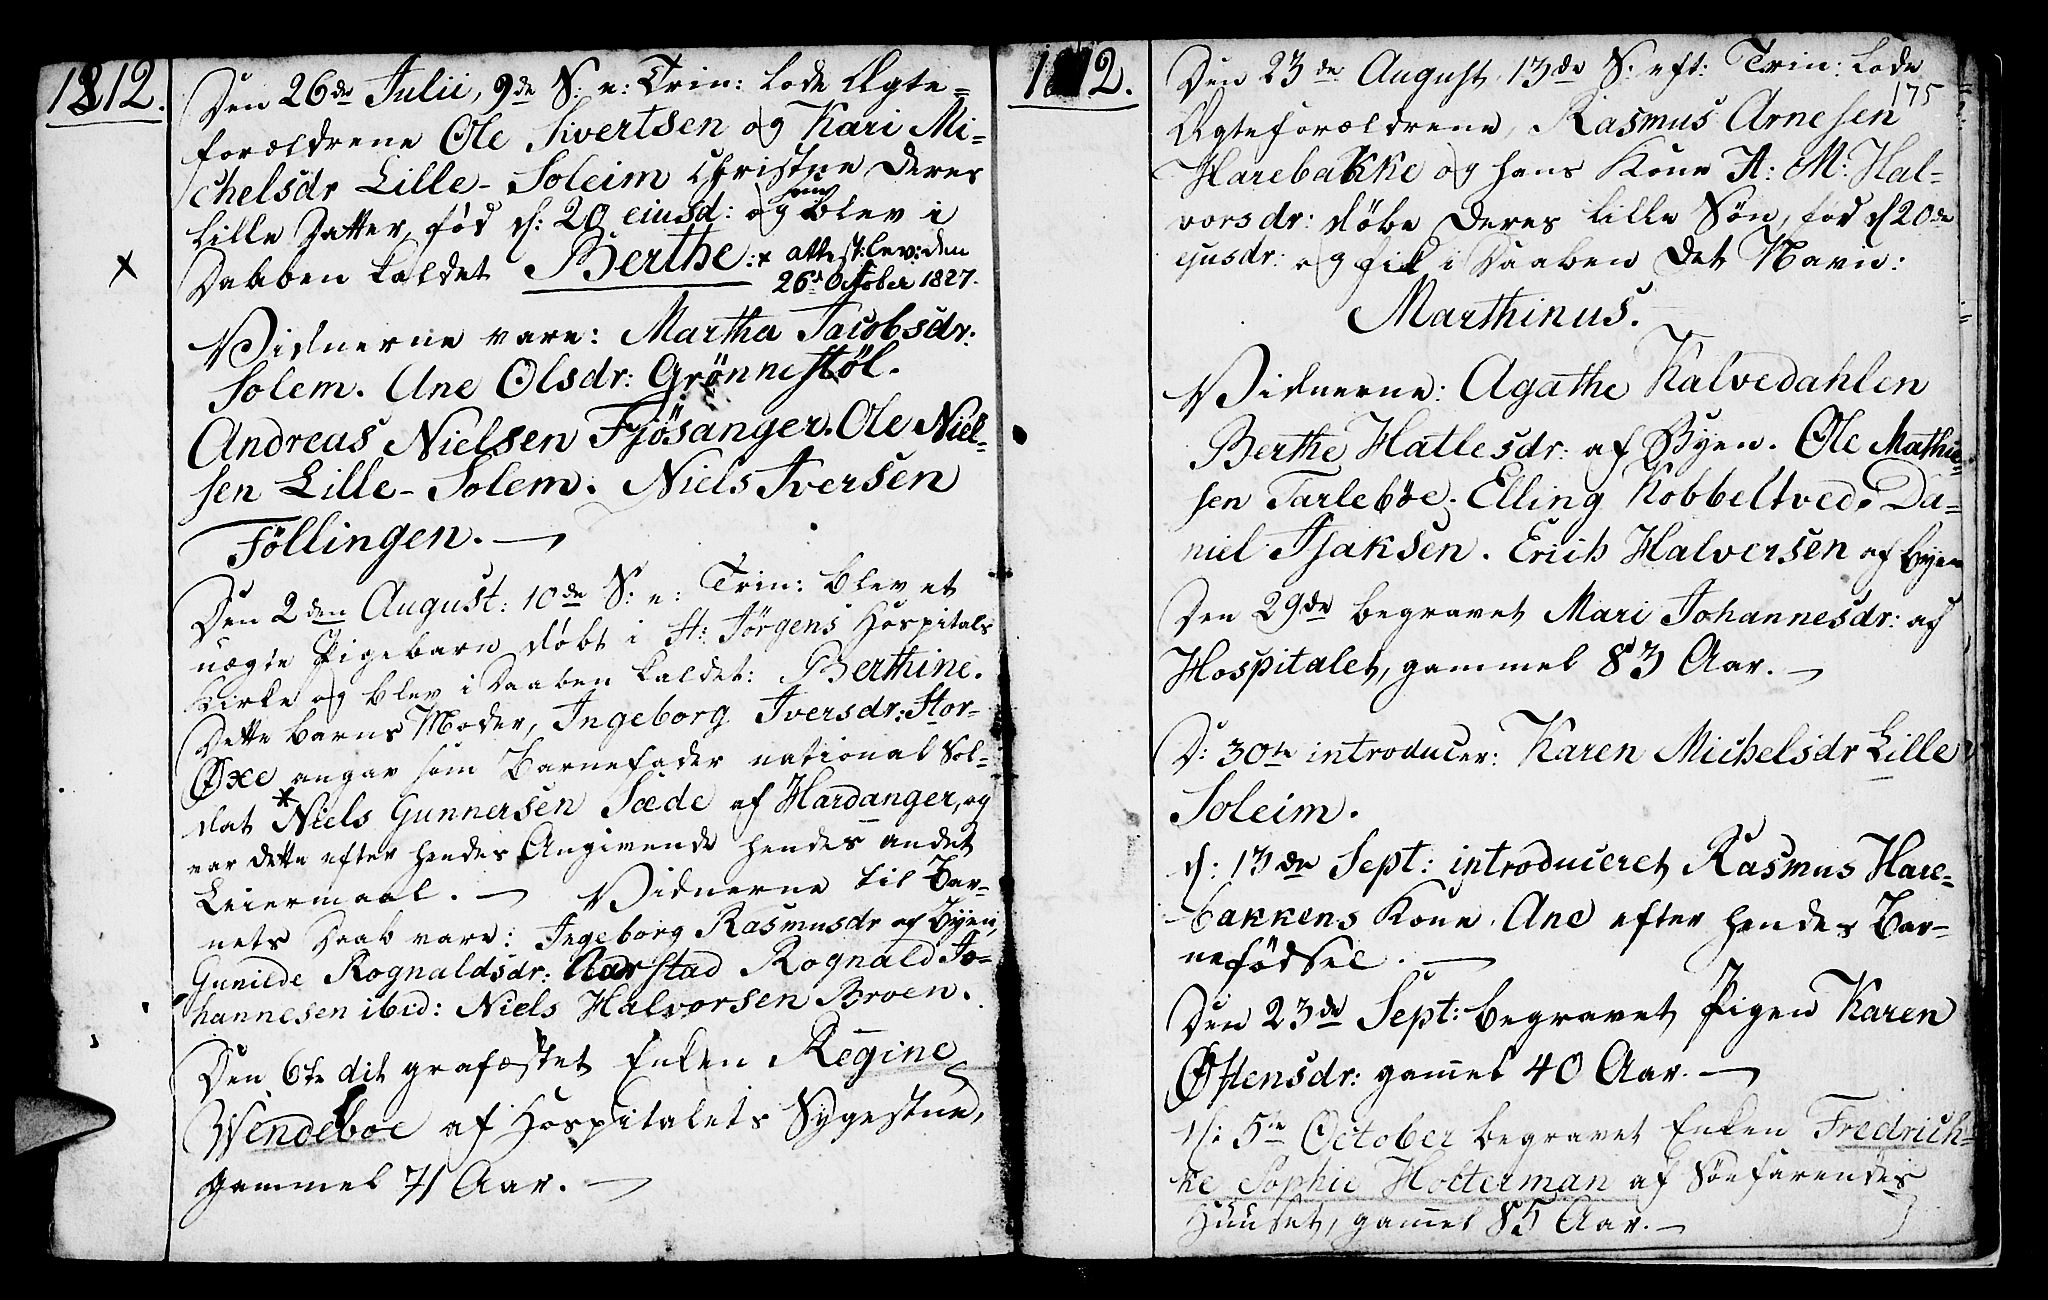 1812.
Den 26de Julii, 9de S: e: Trin: lode Ægte=
forældrene Ole Sivertsen og Kari Mi=
chelsdr Lille-Soleim Christne deres
lille Datter, fød d: 20 eiusd: og hun blev i
Daaben kaldet Berthe: x attest: lev: den
26d October 1827.
x
Vidnerne vare: Martha Jacobsdr:
Solem. Ane Olsdr: Grönnestöl.
Andreas Nielsen Fjösanger. Ole Niel-
sen Lille-Solem. Niels Iversen
Föllingen. —
Den 2den August: 10de S: e: Trin: blev et
uægte Pigebarn döbt i St: Jörgens Hospitals
Kirke og blev i Daaben kaldet: Berthine.
Dette Barns Moder, Ingeborg Iversdr: Stor-
Øxe angav som Barnefader national Sol-
dat * Niels Gunnersen Sæde af Hardanger, og
var dette efter hendes Angivende hendes andet
Leiermaal. — Vidnerne til Bar-
nets Daab vare: Ingeborg Rasmusdr af Byen,
Gunilde Rognaldsdr: Aarstad Rognald Jo-
hannesen ibid: Niels Halvorsen Broen.
Den 6te dit grafæstet Enken Regine
Wendelboe af Hospitalets Sygestue,
gammel 71 Aar. —
1812.
175
Den 23de August 13de S: eft: Trin: lode
Ægteforældrene, Rasmus Arnesen
Harebakke og hans Kone A: M: Hal-
vorsdr: döbe deres lille Søn, fød d 20de
ejusdr: og fik i Daaben det Navn:
Marthinus.
Vidnerne: Agathe Kalvedahlen
Berthe Hatlesdr: af Byen. Ole Mathie-
sen Tarleböe. Elling Kobbeltved. Da-
niel Isaksen. Erich Halversen af Byen
Den 29de begravet Mari Johannesdr: af
Hospitalet, gammel 83 Aar. —
D: 30te introducer: Karen Michelsdr Lille
Soleim.
d: 13de Sept: introduceret Rasmus Hare-
bakkens Kone Ane efter hendes Bar-
nefödsel. —
Den 23de Sept: begravet Pigen Karen
Østensdr: gam̄el 40 Aar. —
d: 5te October begravet Enken Fredrich-
ke Sophie Holterman af Söefarendes
Huuset, gam̄el 85 Aar. —